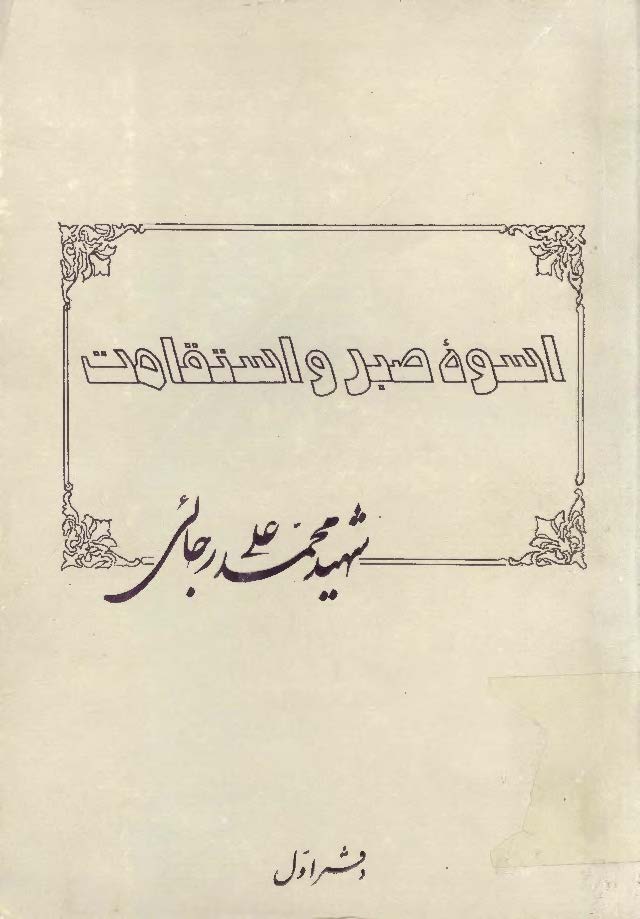 اسوهٔ صبر و استقامت
شهید محمد علی رجائی
دفتر اول